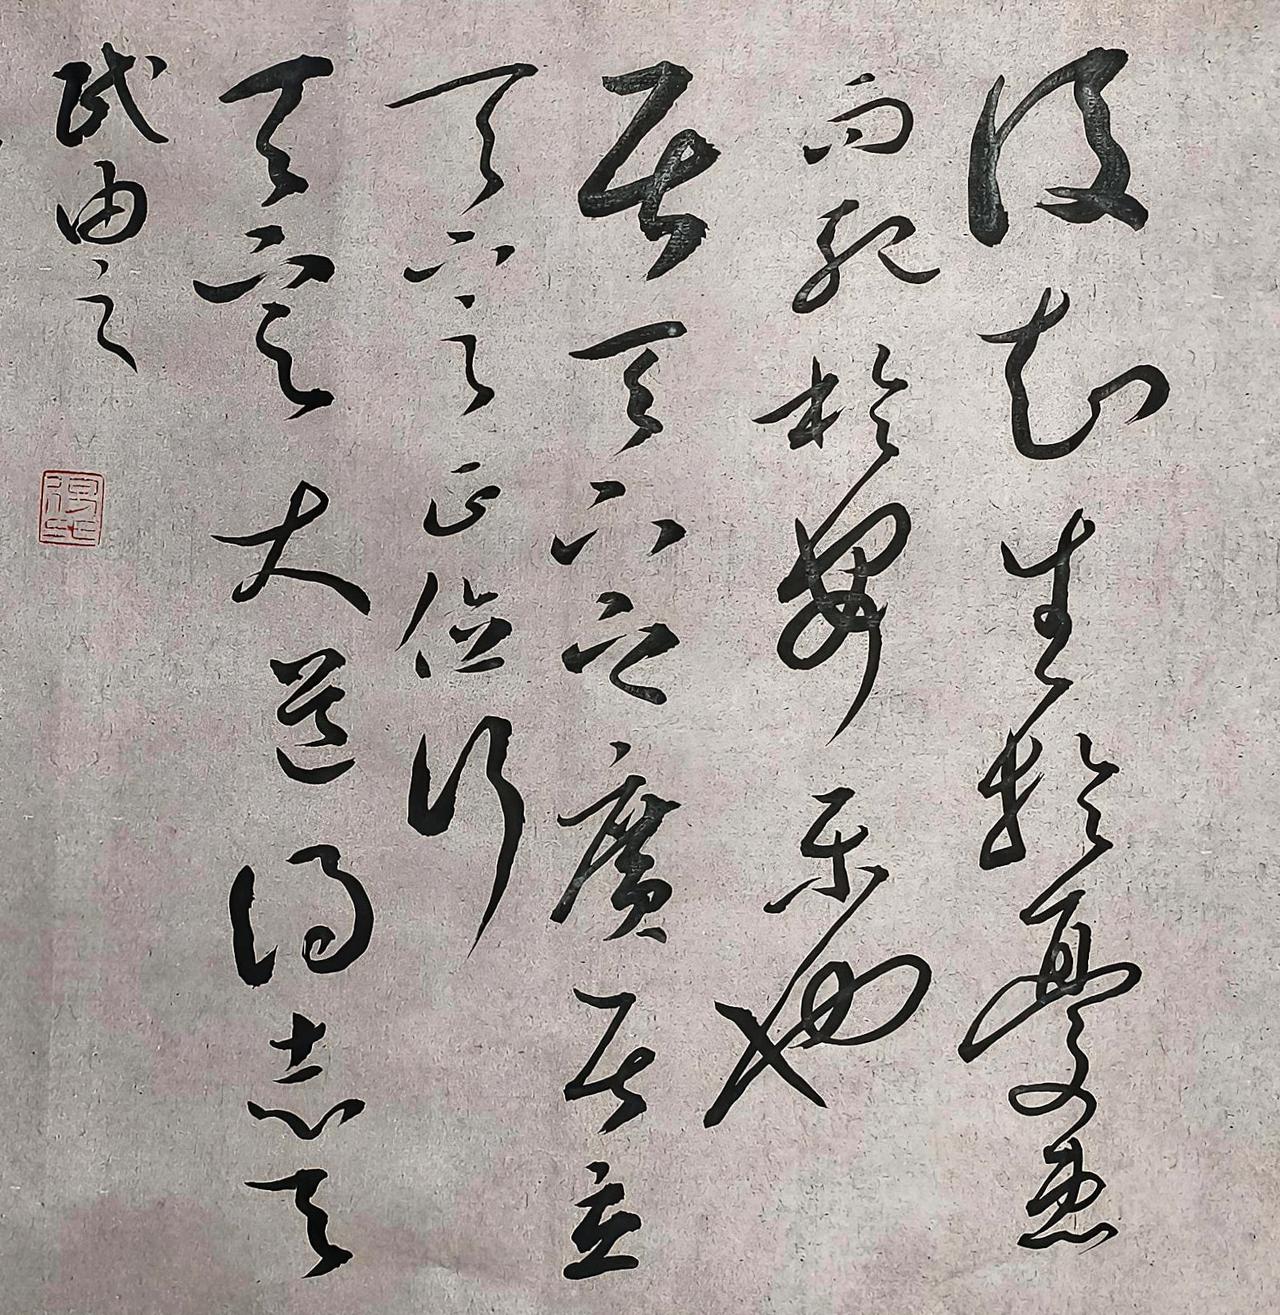 後知生於憂患
而死於安樂也
居天下之廣居立
天下之正位行
天下之大道得志与
民由之